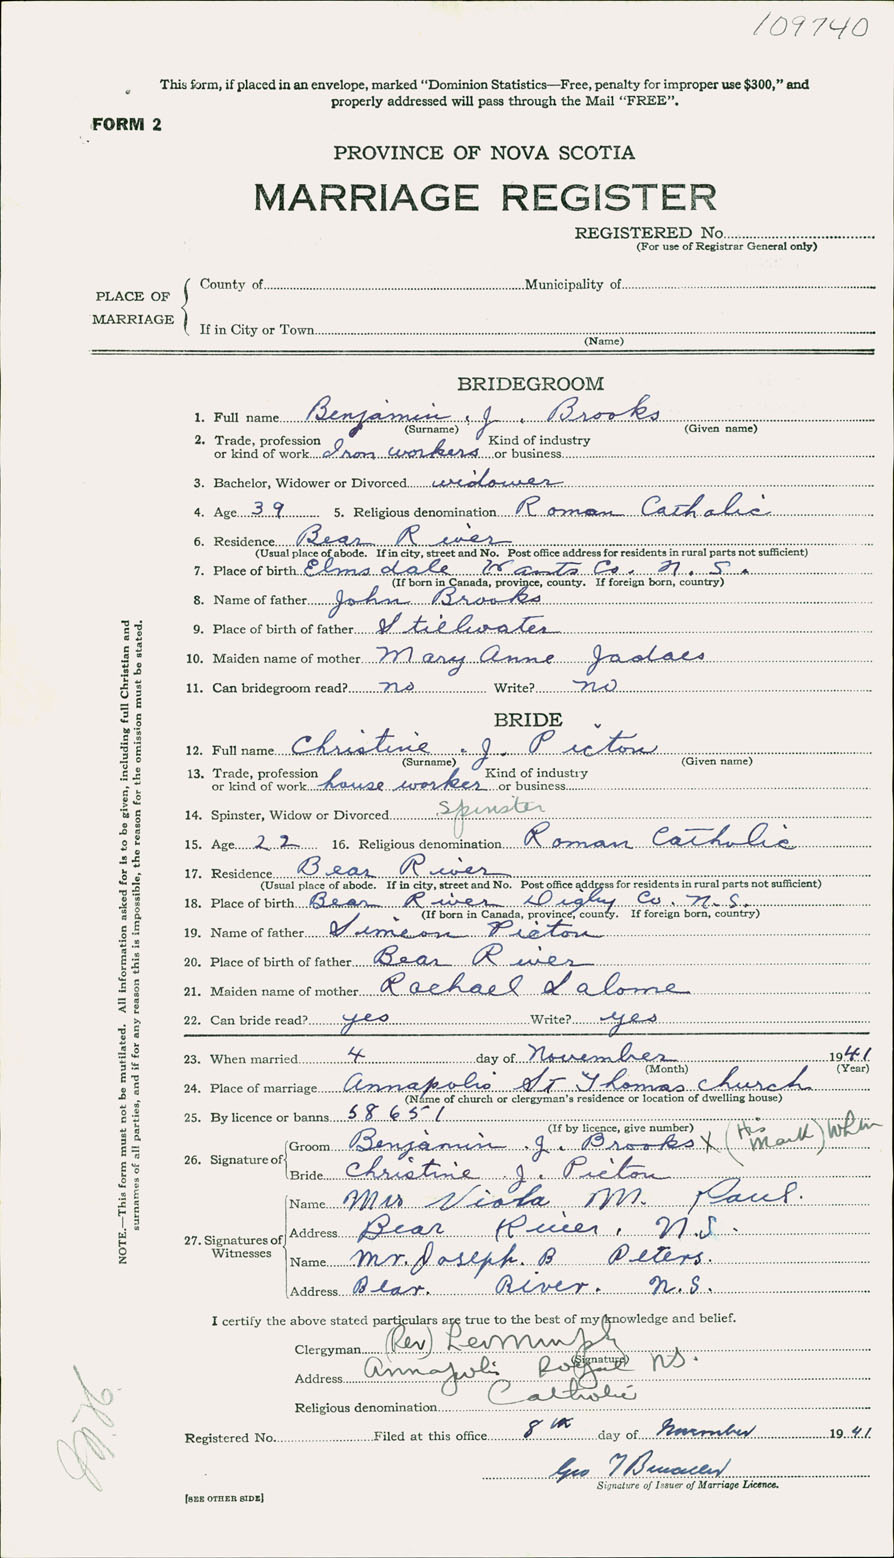 109740
This form, if placed in an envelope, marked "Dominion Statistics—Free, penalty for improper use $300," and
properly addressed will pass through the Mail "FREE".
FORM 2
PROVINCE OF NOVA SCOTIA
MARRIAGE REGISTER
REGISTERED No.
(For use of Registrar General only)
PLACE OF MARRIAGE
County of Municipality of
If in City or Town
(Name)
BRIDEGROOM
1. Full name Benjamin . J . Brooks
(Surname) (Given name)
2. Trade, profession or kind of work Iron workers Kind of industry or business
3. Bachelor, Widower or Divorced widower
4. Age 39 5. Religious denomination Roman Catholic
6. Residence Bear River
(Usual place of abode. If in city, street and No. Post office address for residents in rural parts not sufficient)
7. Place of birth Elmsdale Wants Co. N. S.
(If born in Canada, province, county. If foreign born, country)
8. Name of father John Brooks
9. Place of birth of father Stilwater
10. Maiden name of mother Mary Anne
11. Can bridegroom read? no Write? no
BRIDE
12. Full name Christine . J. Picton
(Surname) (Given name)
13. Trade, profession or kind of work house worker Kind of industry or business
14. Spinster, Widow or Divorced Spinster
15. Age 22 16. Religious denomination Roman Catholic
17. Residence Bear River
(Usual place of abode. If in city, street and No. Post office address for residents in rural parts not sufficient)
18. Place of birth Bear River Digby Co. N.S.
(If born in Canada, province, county. If foreign born, country)
19. Name of father Simeon Picton
20. Place of birth of father Bear River
21. Maiden name of mother Rachael Salome
22. Can bride read? yes Write? yes
23. When married 4 day of November 1941
(Month) (Year)
24. Place of marriage Annapolis St Thomas church
(Name of church or clergyman's residence or location of dwelling house)
25. By licence or banns 58651
(If by licence, give number)
26. Signature of
Groom Benjamin . J. Brooks X (His Mark)
Bride Christine J. Picton
27. Signatures of Witnesses
Name Mrs Viola M. Paul.
Address Bear River, N.S.
Name Mr. Joseph. B Peters.
Address Bear. River. N.S.
I certify the above stated particulars are true to the best of my knowledge and belief.
Clergyman (Rev)
(Signature)
Address Annapolis Royal NS.
Religious denomination Catholic
Registered No. Filed at this office 8th day of November 1941
Geo
Signature of Issuer of Marriage Licence.
[SEE OTHER SIDE]
NOTE.—This form must not be mutilated. All Information asked for is to be given, including full Christian and
surnames of all parties, and if for any reason this is impossible, the reason for the omission must be stated.